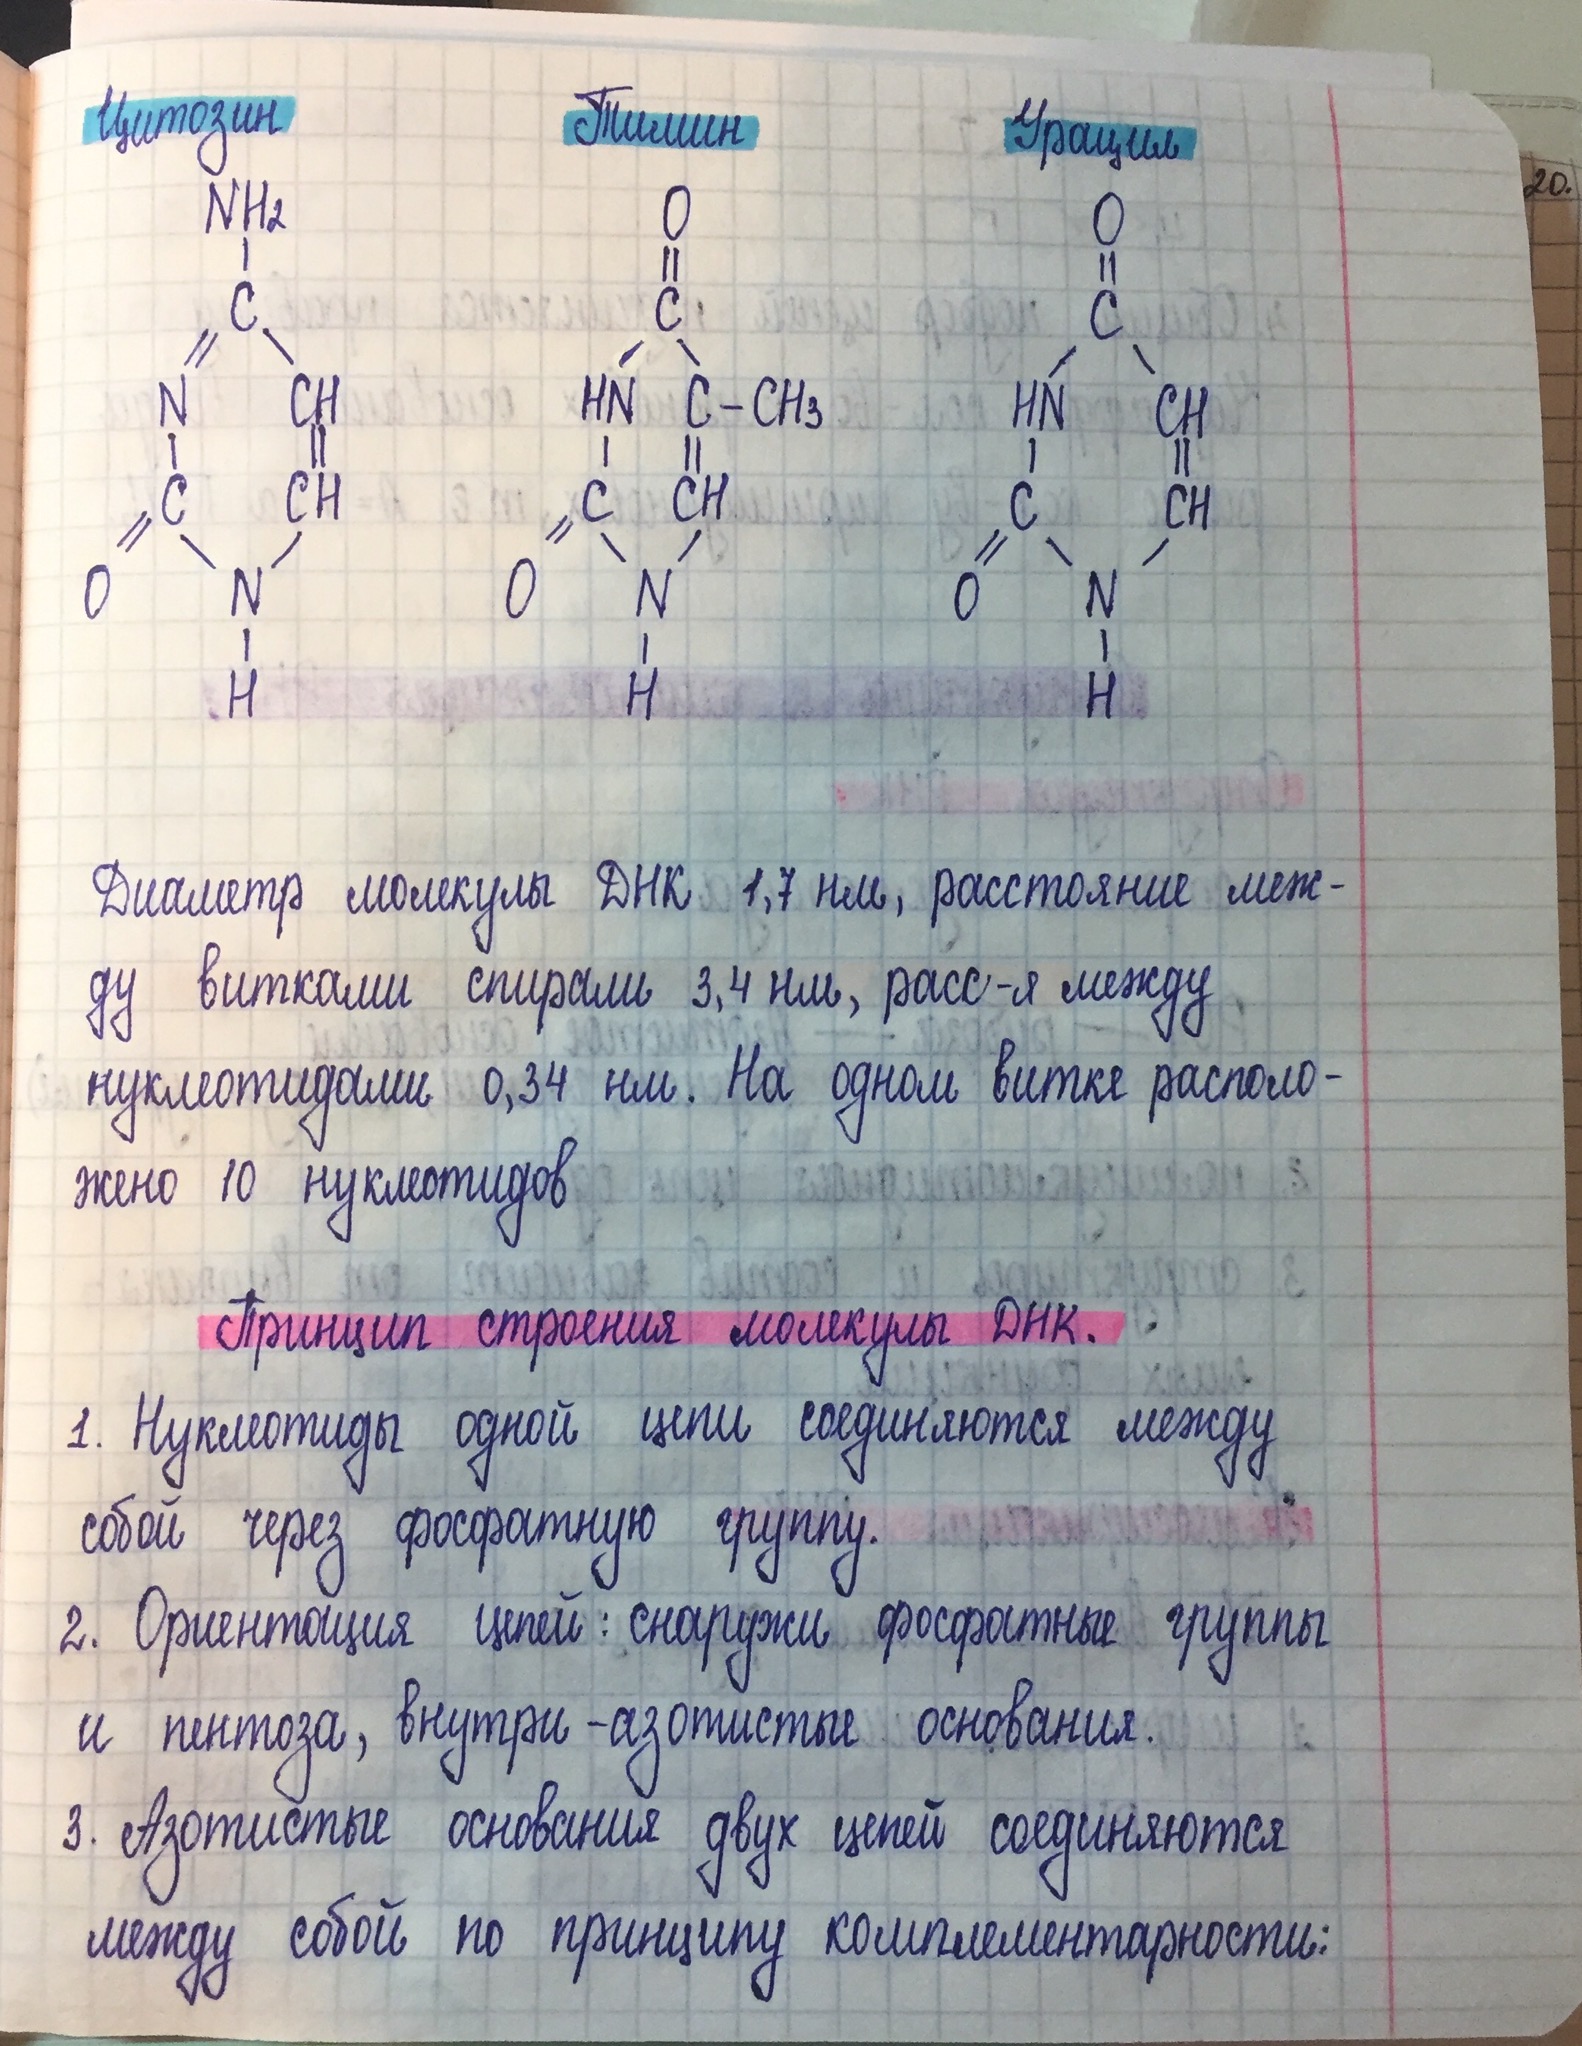 Цитозин Тимин Урацил
NH2 O O
C C C
N CH HN C-CH3 HN CH
C CH C CH C CH
O N O N O N
H H H
20.
Диаметр молекулы ДНК 1,7 нм, расстояние меж-
ду витками спирали 3,4 нм, расс-я между
нуклеотидами 0,34 нм. На одном витке располо-
жено 10 нуклеотидов
Принцип строения молекулы ДНК.
1. Нуклеотиды одной цепи соединяются между
собой через фосфатную группу.
2. Ориентация цепей: снаружи фосфатные группы
и пентоза, внутри - азотистые основания.
3. Азотистые основания двух цепей соединяются
между собой по принципу комплементарности: